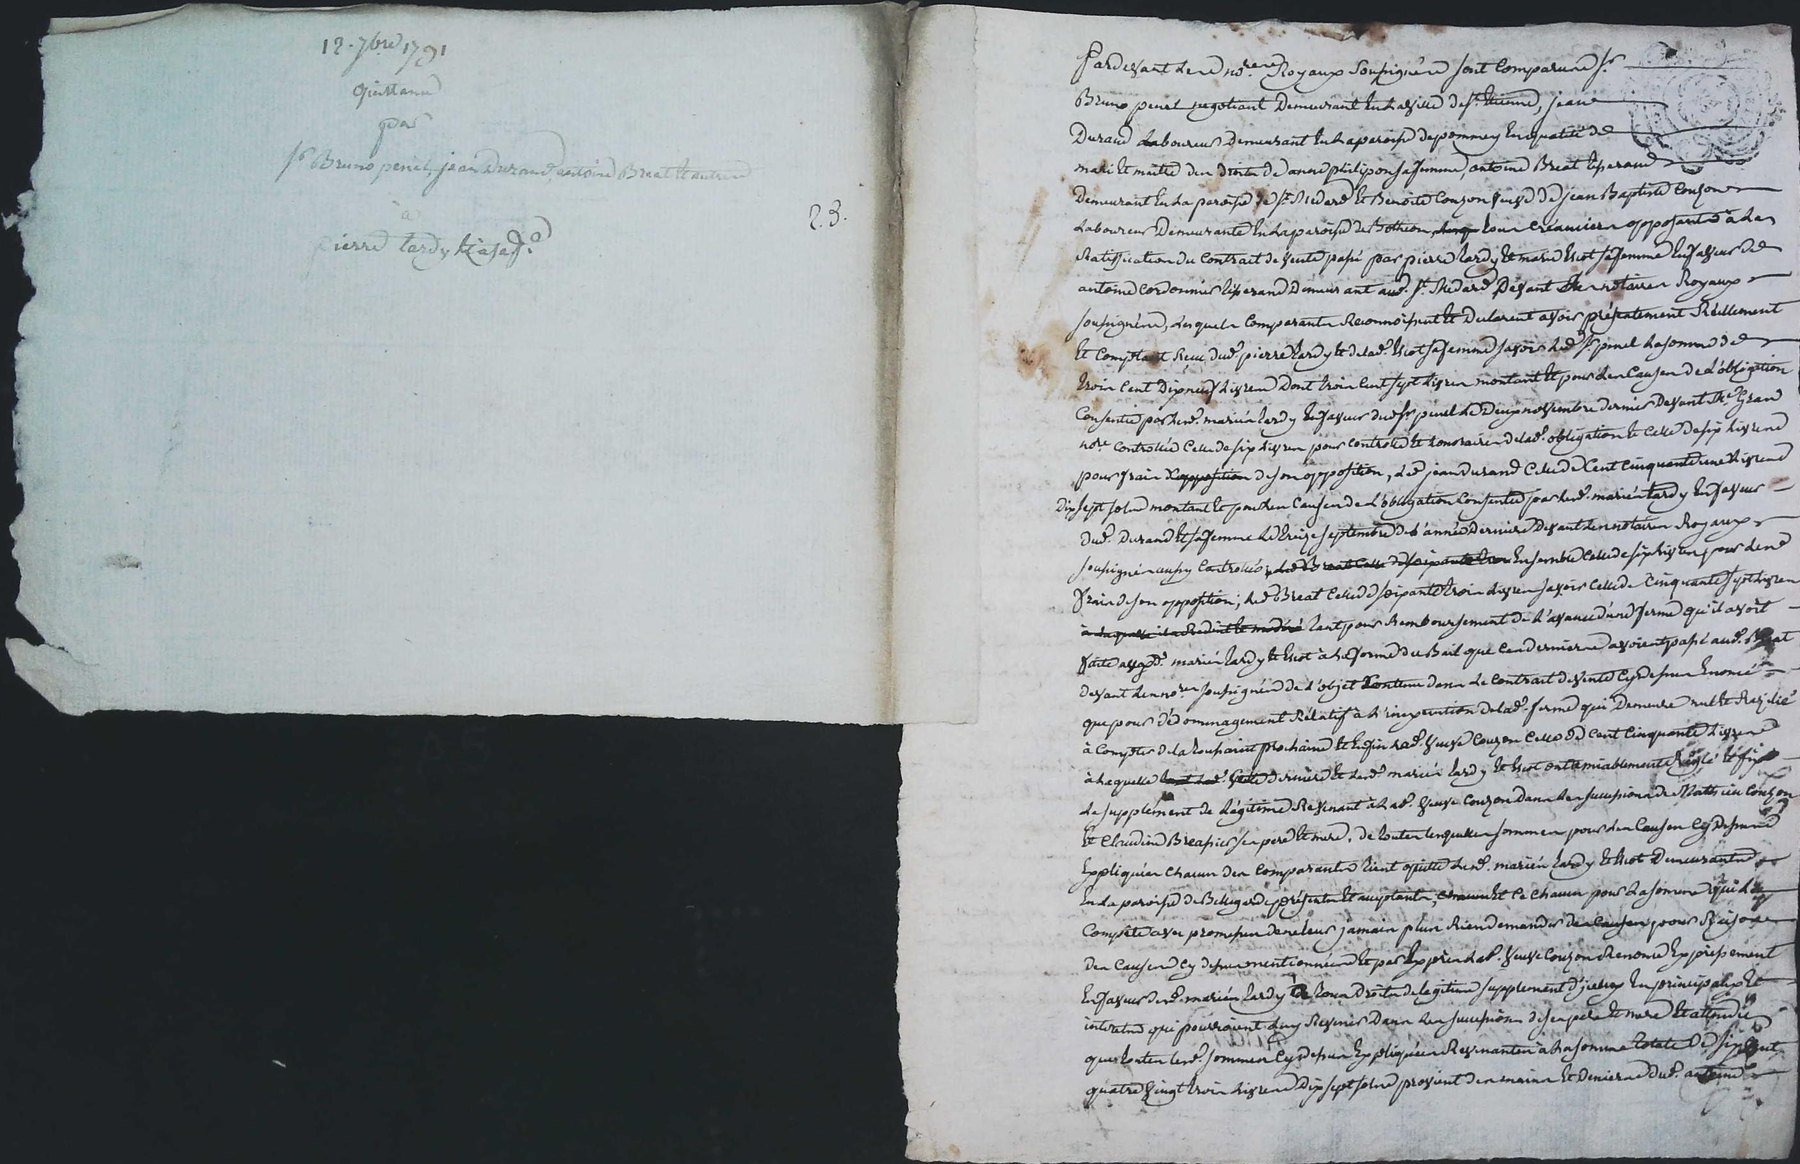 12 7bre 1791
Quittance
par
Sr Bruno penel, jean Durand, antoine Breat et autres
à
pierre tardy et a sa fe
23.
Pardevant les nores Royaux soussignés sont comparus sr
Bruno penel negotiant demeurant en la ville de st Etienne, jean
Durand Laboureur demeurant en la paroisse de pommey en qualité de
mari et maitre des droits de anne philipon sa femme, antoine Breat tisserand
demeurant en la paroisse de st Medard et Benoite Couzon veuve de jean Baptiste
Laboureur demeurante en la paroisse de tous créanciers opposants à la
Ratiffication du Contrat de vente passé par pierre tardy et marie sa femme en faveur de
antoine cordonnier tisserand demeurant aud. st Medard devant les notaires Royaux
soussignés, Lesquels comparants Reconnoissent et declarent avoir présentement Réellement
et comptant Reçu dud. pierre tardy et de lad. sa femme savoir led. sr penel la somme de
trois cent dixneuf Livres dont trois cent sept Livres montant et pour les causes de L'obligation
consentie par les d. mariés tardy en faveur dud. sr penel le deux novembre dernier devant Me
nore controllée celle de six livres pour controlle et honoraires de lad. obligation et celle de six livres
pour frais de son opposition, led. jean durand celle de cent cinquante une Livres
dix sept sols montant et pour les causes de L'obligation consentie par les d. mariés tardy en faveur
dud. durand et sa femme le treize septembre de l'année derniere devant les notaires Royaux
soussignés aussy controllée, ensemble celle de six livres pour les
frais de son opposition; led. Breat celle de soixante trois Livres savoir celle de cinquante sept Livres
tant pour Remboursement de L'avance d'une ferme qu'il avoit
faite auxd. mariés tardy et à la forme du Bail que ces derniers avoient passé aud. Breat
devant les nores soussignés de L'objet contenu dans le contrat de vente cy dessus énoncé
que pour dédommagement Rélatif à L'inexecution de lad. ferme qui demeure nulle et Resiliée
à compter de la toussaint prochaine et enfin lad. veuve Couzon celle de cent cinquante Livres
à laquelle cette derniere et les d. mariés tardy et ont amiablement Réglé et fixé
Le supplément de Légitime Revenant à lad. veuve Couzon dans les successions de Mathieu Couzon
et Claudine ses pere et mere, de toutes lesquelles sommes pour les causes cy dessus
expliquées chacun des comparants tient quitte les d. mariés tardy et demeurants
en la paroisse de Bellegarde présents et acceptants, et ce chacun pour la somme qui le
compete avec promesse de ne leur jamais plus Rien demander pour Raison
des causes cy dessus mentionnées et par exprès lad. veuve Couzon Renonce expressement
en faveur des d. mariés tardy à tous droits de legitime supplement d'icelle en principal et
interets qui pourroient luy Revenir dans les successions de ses pere et mere et attendu
que toutes les d. sommes cy dessus expliquées Revenantes à la somme totale de six cent
quatre vingt trois Livres dix sept sols provient des mains et deniers dud. antoine